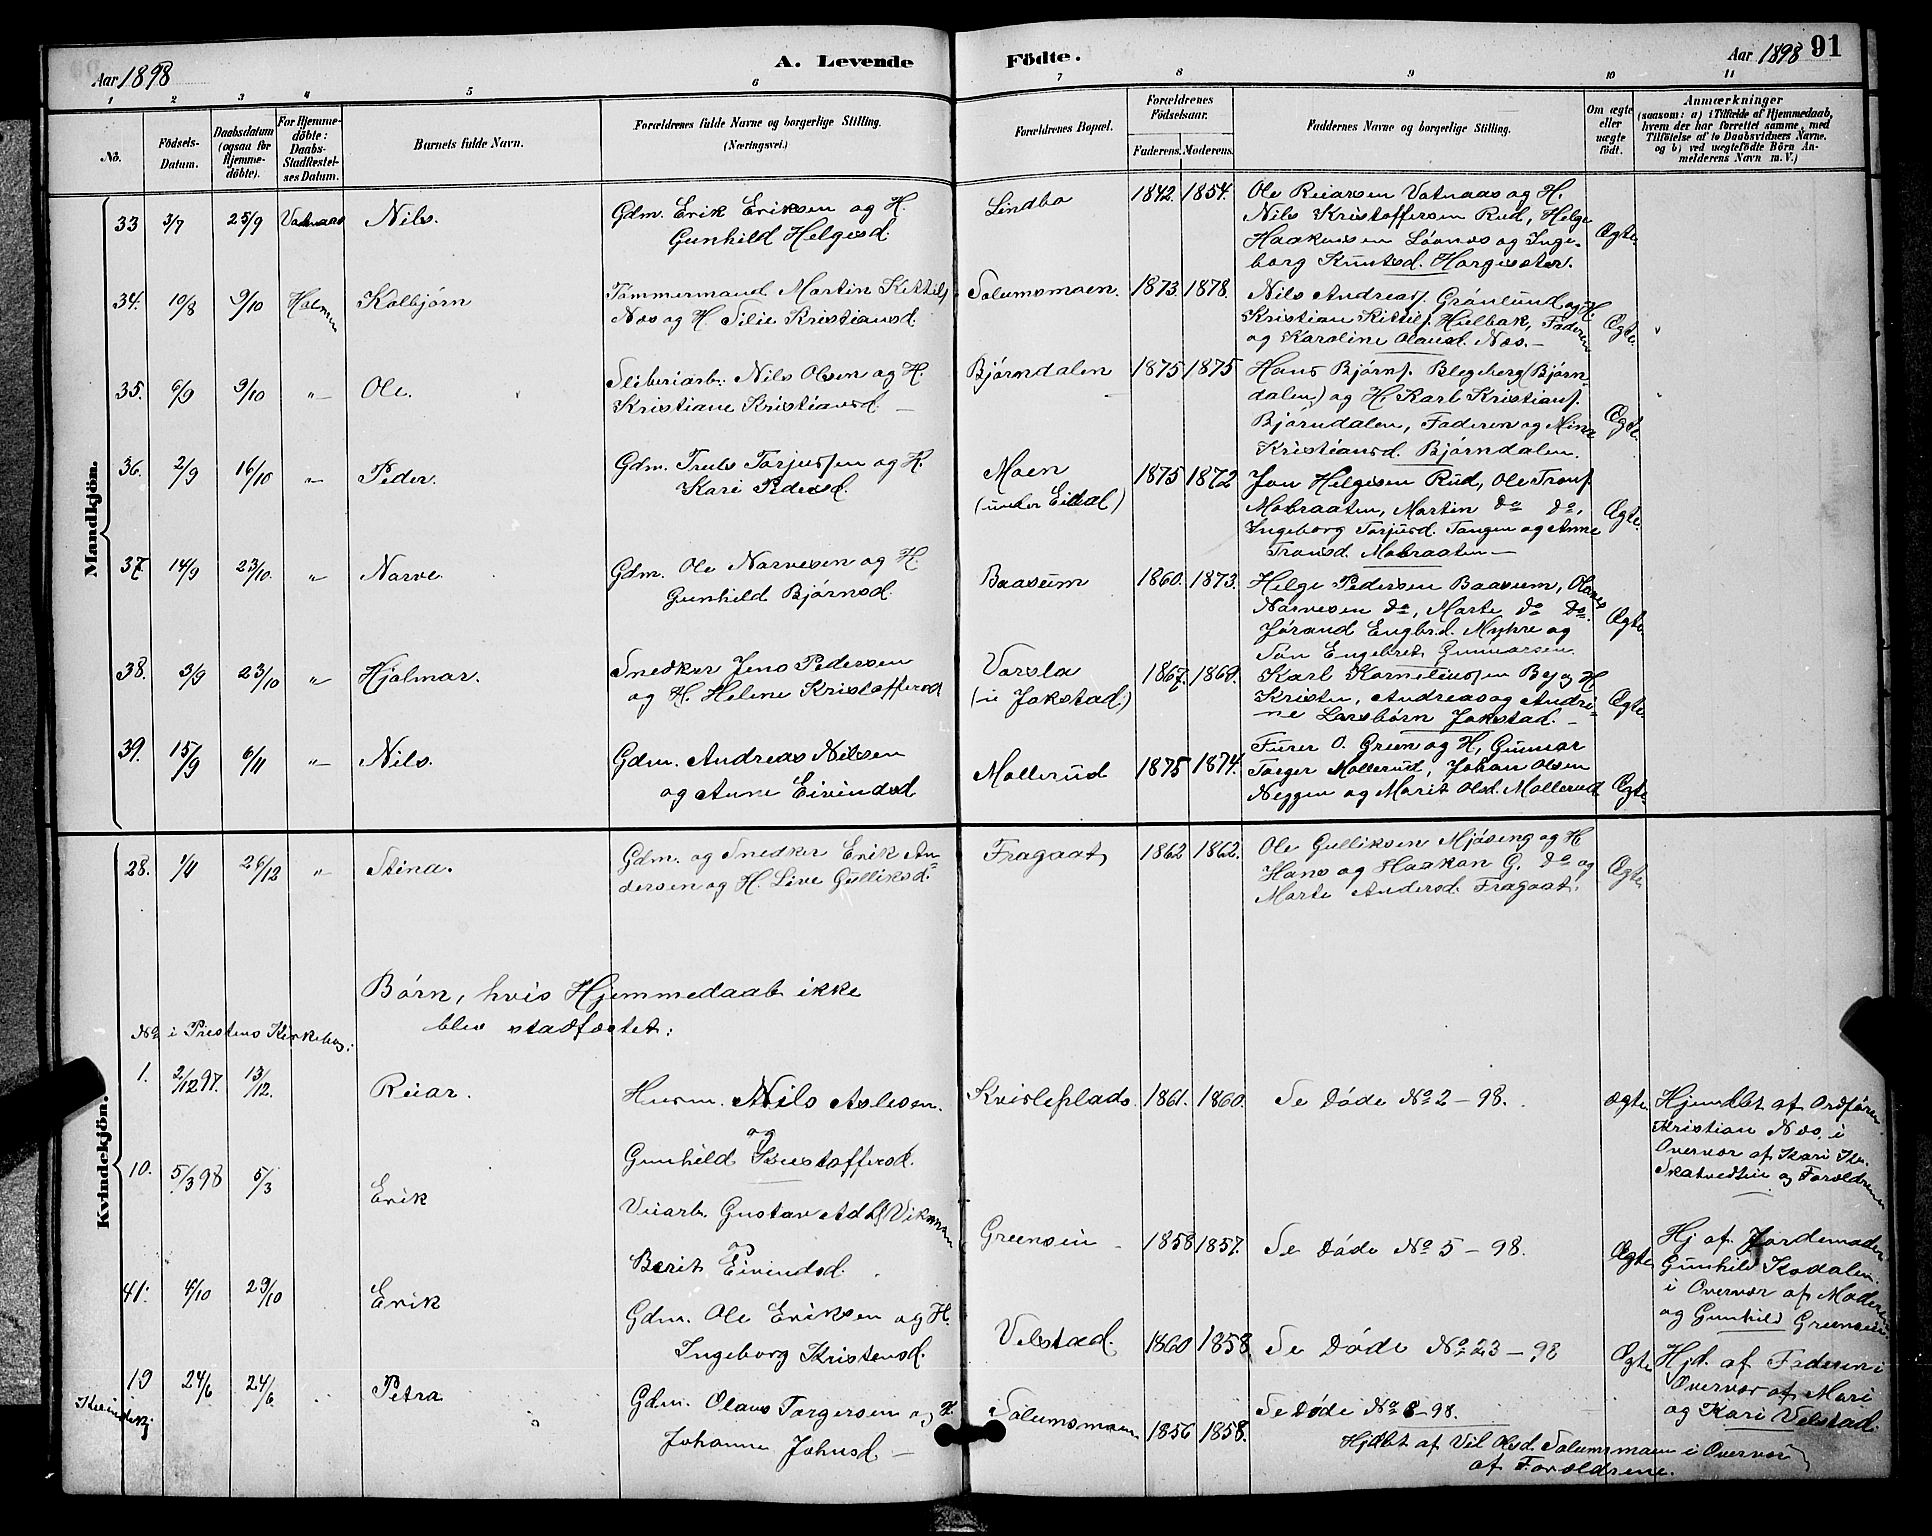 Aar 1898
A. Levende
Födte.
Aar 1898
91
1 2 3 4 5 6 7 8 9 10 11
No.
Födsels-
Datum.
Daabsdatum
(ogsaa for
Hjemme-
döbte).
For Hjemme-
döbte:
Daabs-
Stadfæstel-
ses Datum.
Barnets fulde Navn.
Forældrenes fulde Navne og borgerlige Stilling.
(Næringsvei.)
Forældrenes Bopæl.
Forældrenes
Födselsaar.
Faderens. Moderens.
Faddernes Navne og borgerlige Stilling.
Om ægte
eller
uægte
födt.
Anmærkninger
(saasom: a) i Tilfælde af Hjemmedaab,
hvem der har forrettet samme, med
Tilföielse af to Daabsvidners Navne.
og b) ved uægtefödte Börn An-
melderens Navn m. V.)
Mandkjön.
33 3/7 25/9 Vatnaas Nils.
Gdm. Erik Eriksen og H.
Gunhild Helgesd.
Lindbo 1842. 1854.
Ole Reiarsen Vatnaas og H.
Nils Kristoffersen Rud, Helge
Haakensen Lövnes og Inge-
borg Knutsd. Horgesæter.
Ægte
34. 10/8 9/10 Holmen Kolbjörn
Tömmermand Martin Kittils.
Næs og H. Silie Kristiansd.
Solumsmoen. 1873. 1878.
Nils Andreas. Grönlund og H.
Kristian Kittils. Hulbak, Faderen
og Karoline Olausd. Næs.—
Ægte
35. 6/9 9/10 -"- Ole.
Sliberiarb. Nils Olsen og H.
Kristiane Kristiansd. —
Bjørndalen 1875 1875
Hans Bjørns. Blegeberg (Bjørn-
dalen) og H. Karl Kristians.
Bjørndalen, Faderen og Mina
Kristiansd. Bjørndalen.
Ægte
36. 2/9 16/10 -"- Peder.
Gdm. Truls Torjussen og H.
Kari Pedersd.
Moen 1875 1872
(under Eidal)
Jon Helgesen Rud, Ole Trons.
Mobraaten, Martin do do,
Ingeborg Torjusd. Tangen og Anne
Tronsd. Mobraaten—
Ægte
37. 14/9 23/10. " Narve.
Gdm. Ole Narvesen og H.
Gunhild Bjørnsd.
Baasum 1860. 1873.
Helge Pedersen Baasum, Olaves
Narvesen do, Marte do do.
Jörand Engbrd. Myhre og
Søn Engebret Gunnarsen.
Ægte
38. 3/9 23/10 " Hjalmar.
Snedker Jens Pedersen
og H. Helene Kristoffersd
Varsla 1867. 1869.
(i Jokstad)
Karl Korneliussen By og H
Kristen, Andreas og Andri-
ne Larsbörn Jokstad.—
Ægte
39. 15/9 6/11 -"- Nils.
Gdm. Andreas Nilsen
og Anne Eivindsd
Mollerud 1875 1874.
Furer O. Green og H, Gunnar
Torger Mollerud, Johan Olsen
Neggen og Marit Olsd. Mollerud
Ægte
Kvindekjön.
28. 1/11 26/12 " Stina.
Gdm. og Snedker Erik An-
dersen og H. Live Gulliksd.
Fragaat 1862 1862.
Ole Gulliksen Mjöseng og H
Hans og Haakon G. do og
Marte Andersd. Fragaat.
Ægte
Börn, hvis Hjemmedaab ikke
blev stadfæstet:
No i Prestens Kirkebog:
1. 2/12 97. 13/12. Reiar.
Husm. Nils Aslesen.
og
Gunhild Kristoffersd.
Kvisleplads. 1861. 1860.
Se Döde No 2 - 98.
ægte
Hjemdbt af Ordfören
Kristian Næs, i
Overvær af Kari
Skatvedtein og Forældrene
10. 5/3 98 5/3 Erik
Veiarb. Gustav Adolf Vikman
og
Berit Eivindsd.
Greensein 1858 1857.
Se Döde No 5 - 98.
Ægte
Hj af Jordemoder
Gunhild Kodalen.
i Overvær af Moderen
og Gunhild Greensein
41. 4/10 29/10 Erik
Gdm. Ole Eriksen og H.
Ingeborg Kristensd.
Velstad 1860 1858.
Se Döde No 23 - 98
Ægte
Hjd. af Faderen i
Overvær af Mari
og Kari Velstad.
Kvindekj
19 24/6 24/6 Petra
Gdm. Olaus Torgersen og H.
Johanne Johnsd. —
Solumsmoen 1856 1858.
Se Döde No 8-98.
Hjdbt af Vel Olsd. Solumsmoen i Overvær
af Forældrene.